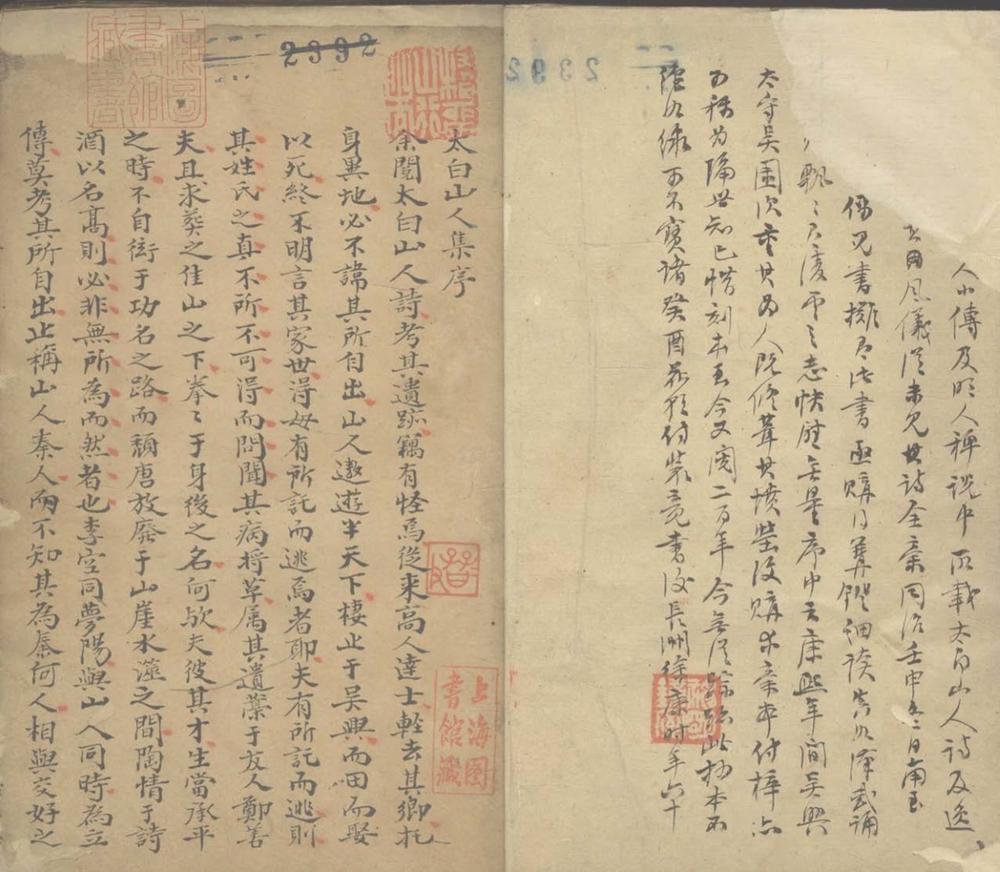 人小傳及明人稗說中所載太白山人詩及逸
風儀從未見其詩全稾同治壬申冬日甫
書攤有此書亟購得篝鐙細讀
飄〻有凌雲之志快慰無量序中言康熙年間吳興
太守吳園次奇其為人既修葺其墳塋復購求稾本付梓亦
可稱為隔世知已惜刻本至今又閱二百年今無從踪跡此抄本不
絕如縷可不寶諸癸酉花朝付裝竟書後長洲徐康時年六十
2392
太白山人集序
余閱太白山人詩考其遺跡竊有怪焉從來高人達士輕去其鄉托
身異地必不諱其所自出山人遨遊半天下棲止于吳興而田而娶
以死終不明言其家世得毋有所託而逃焉者耶夫有所託而逃則
其姓氏之真不所不可得而問聞其病將革属其遺藁于友人鄭善
夫且求葬之佳山之下拳〻于身後之名何欤夫彼其才生當承平
之時不自衒于功名之路而頹唐放廢于山崖水澨之間陶情于詩
酒以名高則必非無所為而然者也李空同夢陽與山人同時為立
傳莫考其所自出止稱山人秦人而不知其為秦何人相與交好之
上海圖書館藏書
上海圖書館藏